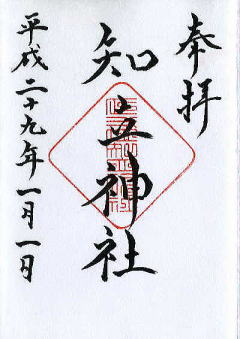 奉拝
知立神社
平成二十九年一月一日